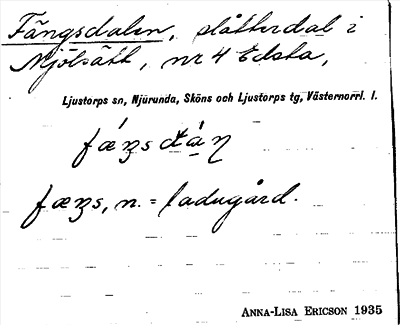 Fängsdalen, slåtterdal i
Mjölsätt, nr 4 Edsta,
Ljustorps sn, Njurunda, Sköns och Ljustorps tg, Västernorrl. l.
fæŋs, n. = ladugård.
ANNA-LISA ERICSON 1935